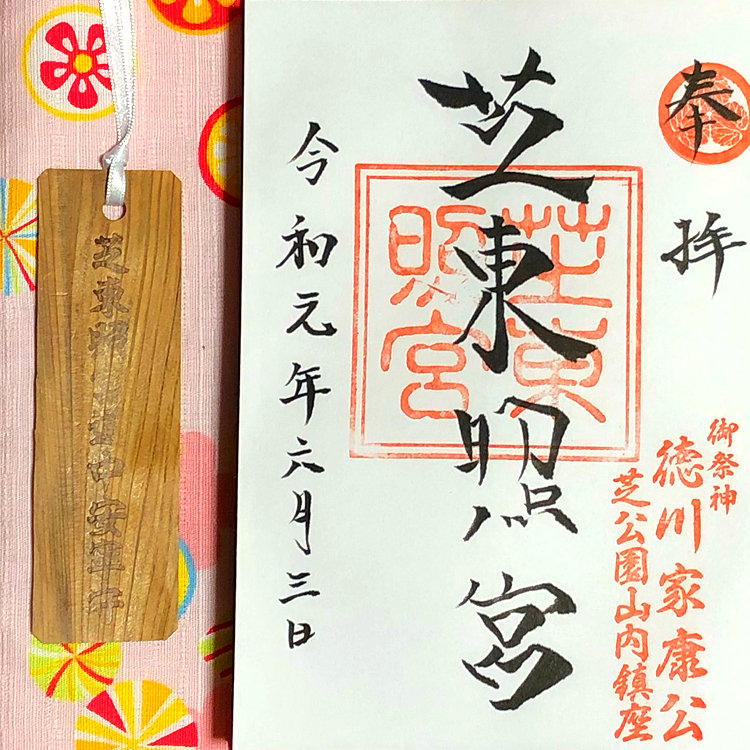 奉拝
御祭神
徳川家康公
芝公園山内鎮座
芝東照宮
芝東照宮
令和元年六月三日
芝東照宮